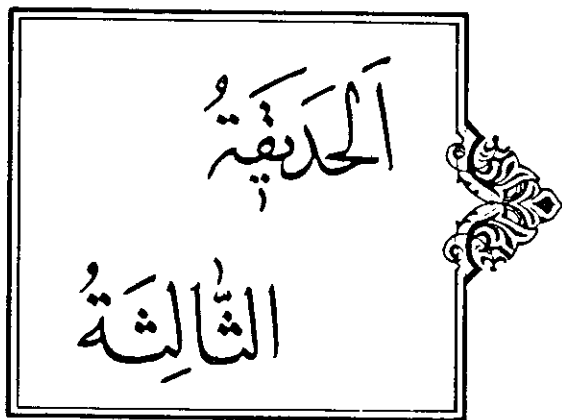 اَلْحَدَيقَةُ
الثَّالِثَةُ